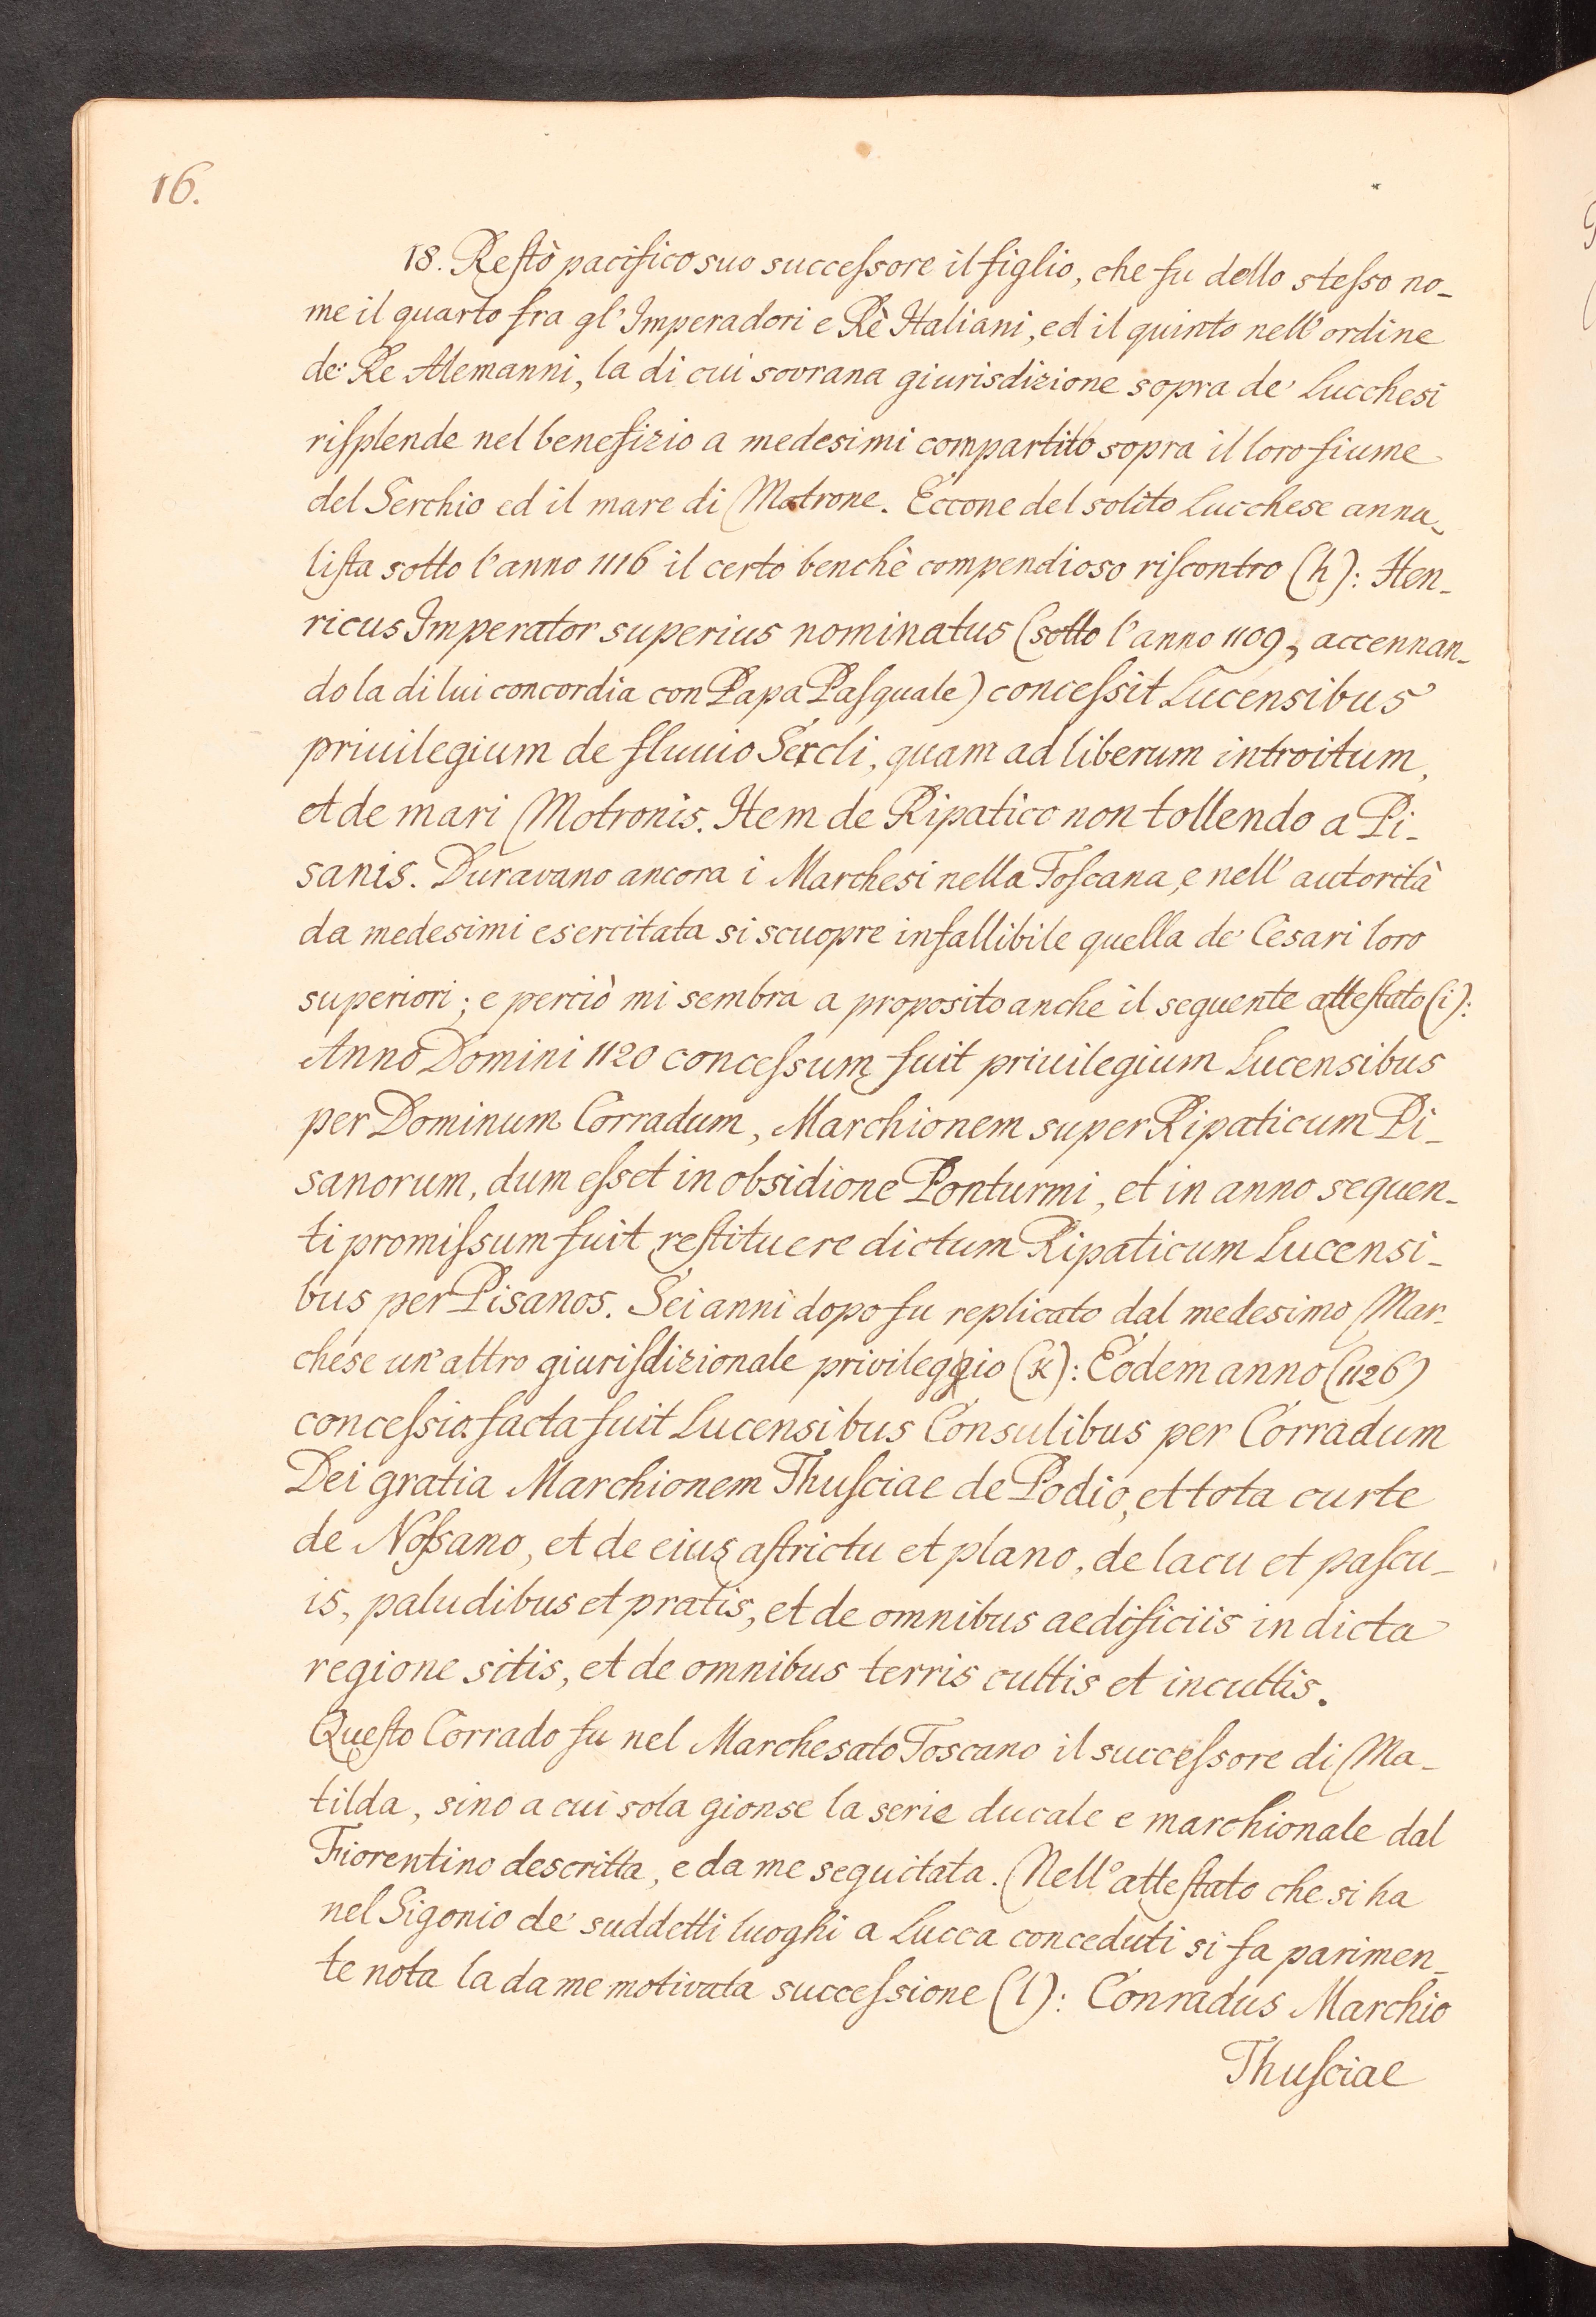 16.
18. Restò pacifico suo successore il figlio, che fu dello stesso no-
me il quarto fra gl' Imperadori e Rè Italiani, ed il quinto nell' ordine
de' Re Alemanni, la di cui sovrana giurisdizione sopra de' Lucchesi
risplende nel benefizio a medesimi compartito sopra il loro fiume
del Serchio ed il mare di Motrone. Eccone del solito Lucchese anna-
lista sotto l'anno 1116 il certo benchè compendioso riscontro (h): Hen-
ricus Imperator superius nominatus (sotto l'anno 1109, accennan-
do la di lui concordia con Papa Pasquale) concessit Lucensibus
priuilegium de fluuio Sercli, quam ad liberum introitum,
et de mari Motronis. Item de Ripatico non tollendo a Pi-
sanis. Duravano ancora i Marchesi nella Toscana, e nell' autorità
da medesimi esercitata si scuopre infallibile quella de' Cesari loro
superiori; e perciò mi sembra a proposito anche il seguente attestato (i):
Anno Domini 1120 concessum fuit priuilegium Lucensibus
per Dominum Corradum, Marchionem super Ripaticum Pi-
sanorum, dum esset in obsidione Ponturmi, et in anno sequen-
ti promissum fuit restituere dictum Ripaticum Lucensi-
bus per Pisanos. Sei anni dopo fu replicato dal medesimo Mar-
chese un'altro giurisdizionale privileggio (k): Eodem anno (1126)
concessio facta fuit Lucensibus Consulibus per Corradum
Dei gratia Marchionem Thusciae de Podio, et tota curte
de Nossano, et de eius astrictu et plano, de lacu et pascu-
is, paludibus et pratis, et de omnibus aedificiis in dicta
regione sitis, et de omnibus terris cultis et incultis.
Questo Corrado fu nel Marchesato Toscano il successore di Ma-
tilda, sino a cui sola gionse la serie ducale e marchionale dal
Fiorentino descritta, e da me seguitata. Nell' attestato che si ha
nel Sigonio de' suddetti luoghi a Lucca conceduti si fa parimen-
te nota la da me motivata successione (l): Conradus Marchio
Thusciae